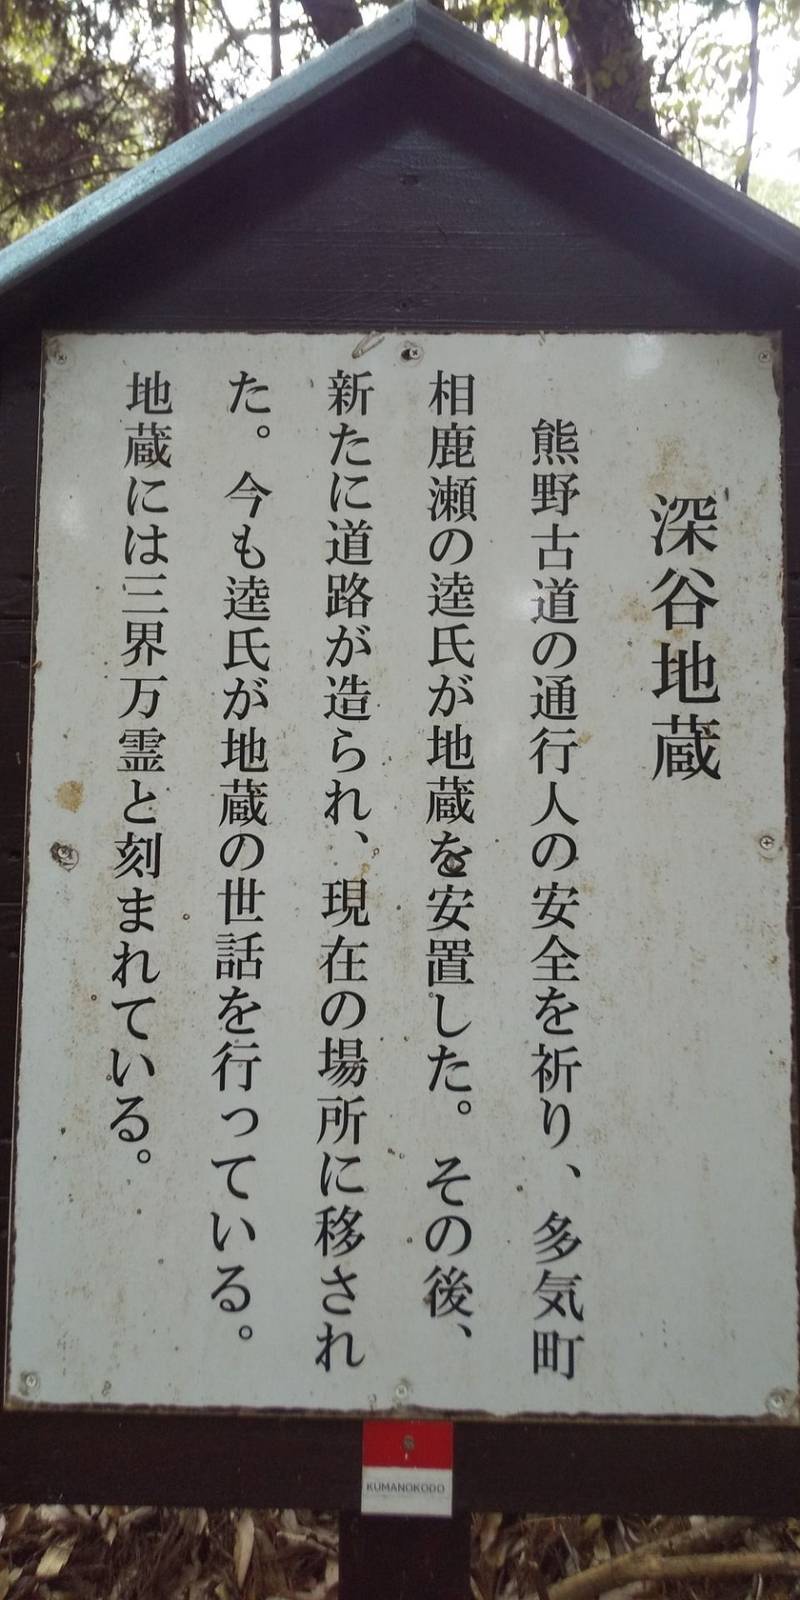 深谷地蔵
熊野古道の通行人の安全を祈り、多気町
相鹿瀬の逵氏が地蔵を安置した。その後、
新たに道路が造られ、現在の場所に移され
た。今も逵氏が地蔵の世話を行っている。
地蔵には三界万霊と刻まれている。
KUMANOKODO